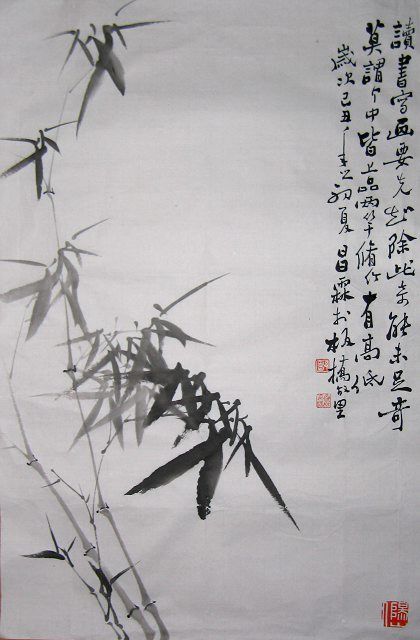 讀書写画要先除此能未足奇
莫謂个中皆上品兩竿脩竹有高低
歲次己丑年之初夏昌霖於板橋故里